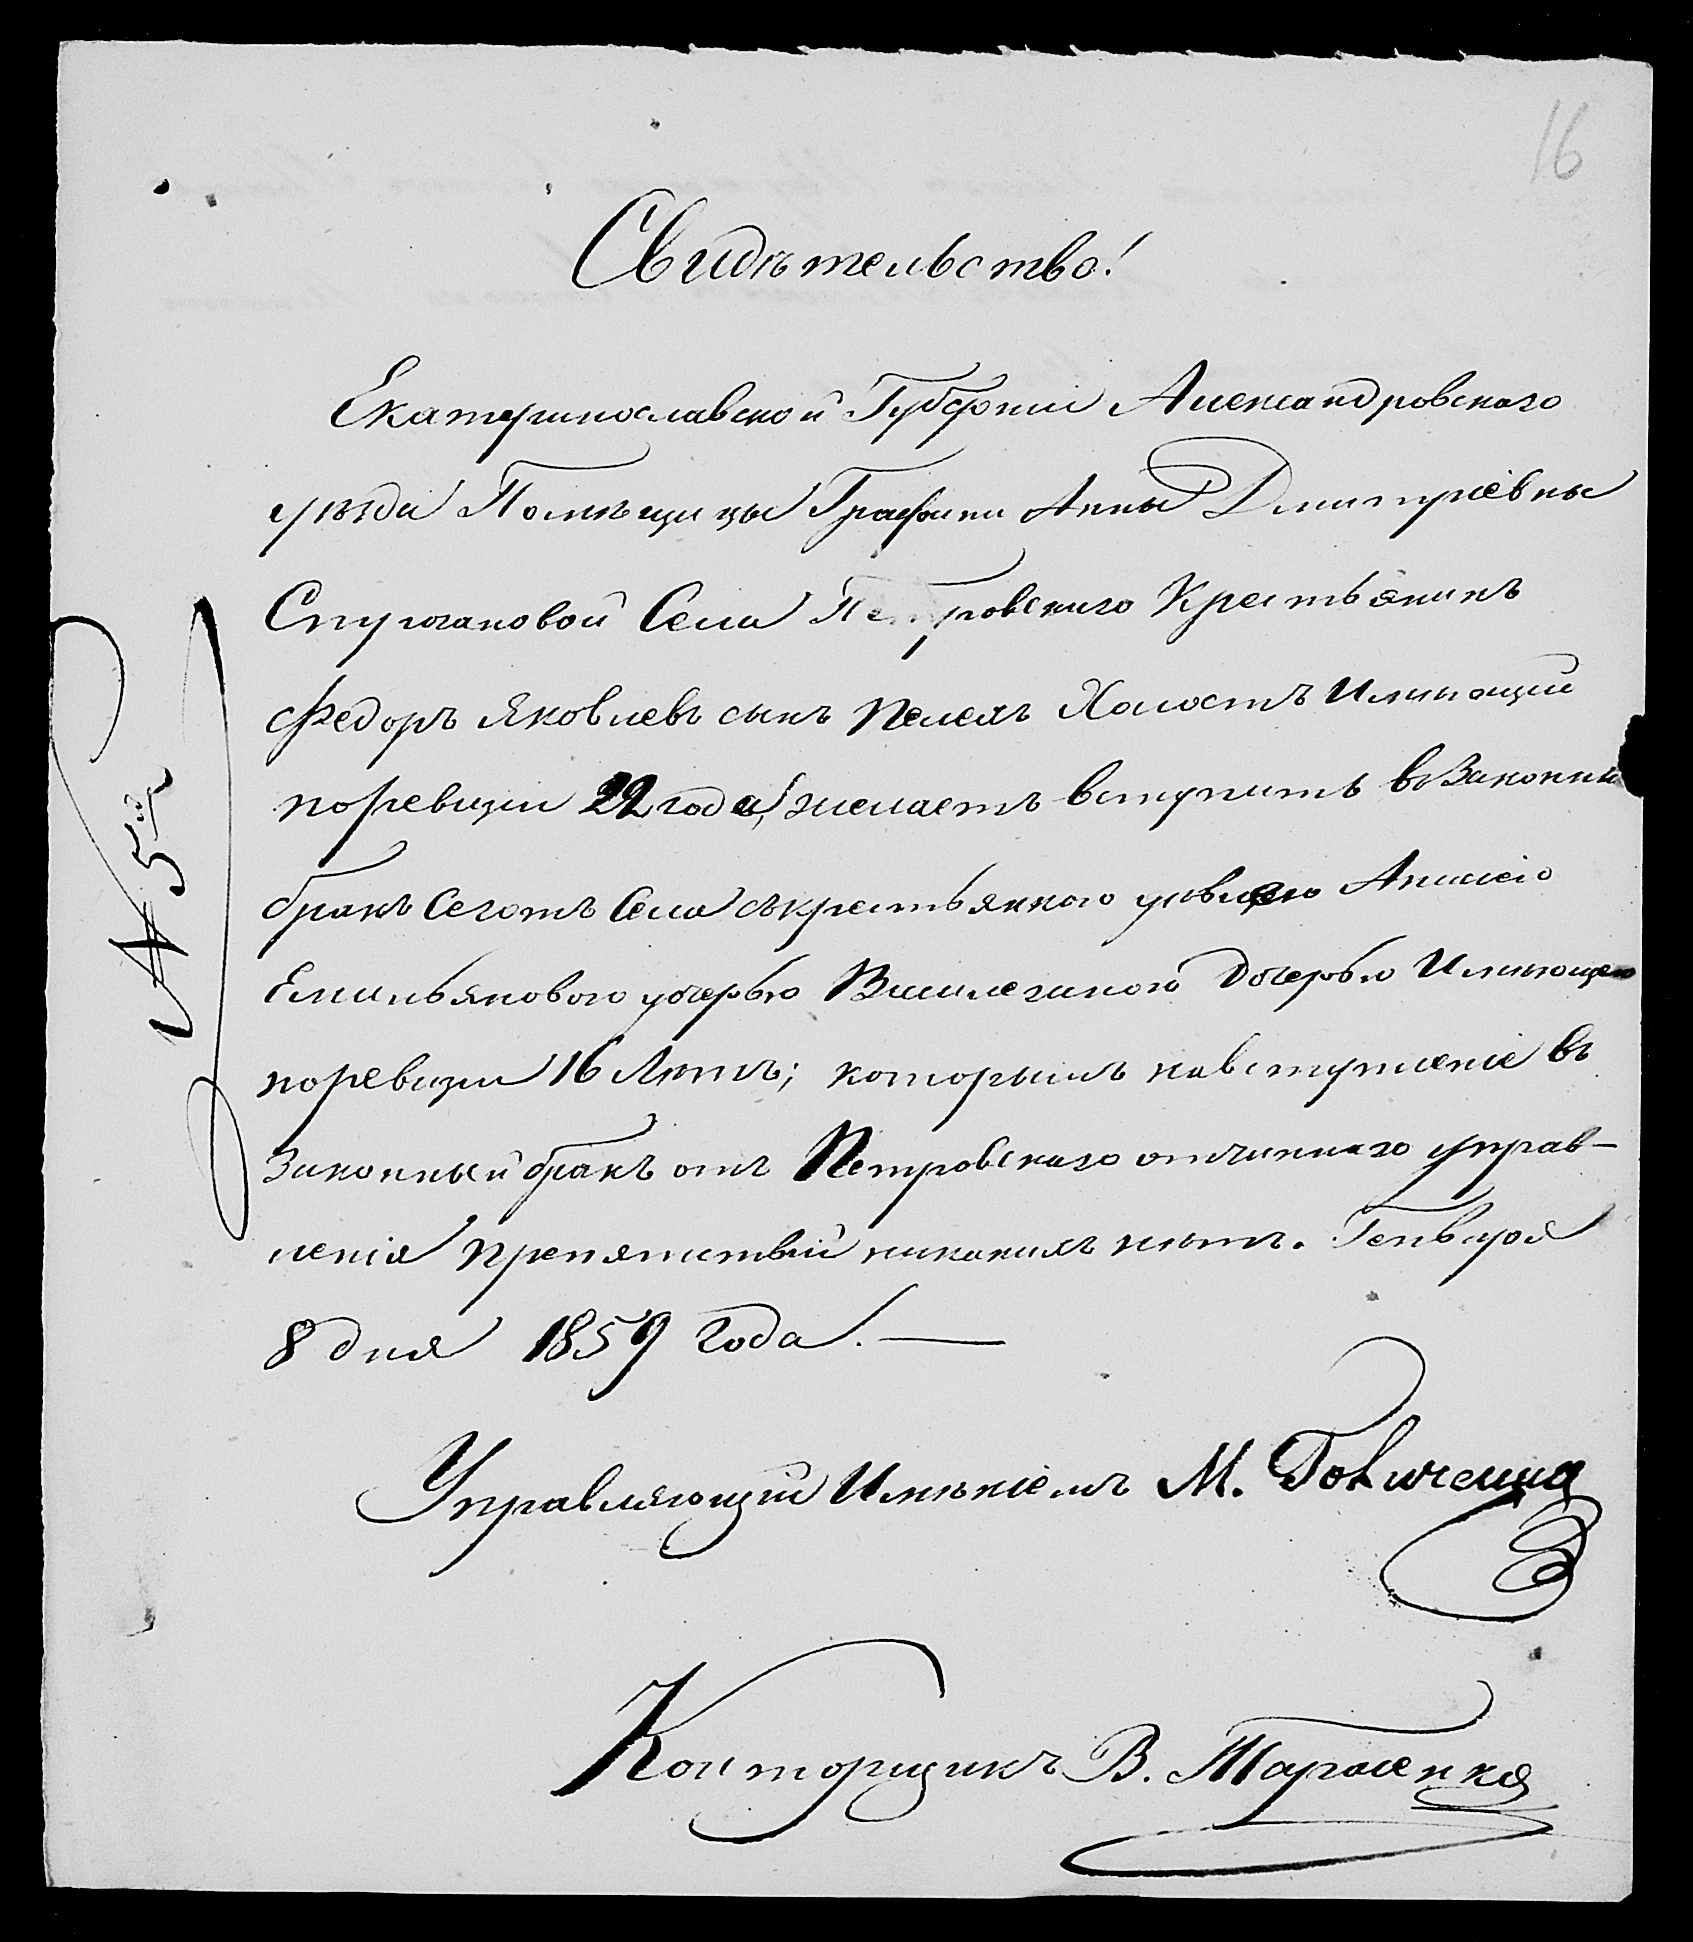 16
Свидѣтельство!
Екатеринославской Губерніи Александровского
уѣзда Помѣщицы Графини Анны Дмитріевны
Строгановой Села Петровскаго Крестьянинъ
Федоръ Яковлевъ сынъ Холостъ Имѣющій
поревизіи 22 года, желаетъ вступить в Законны
бракъ Сегожъ Села съкрестьянкою Анисіею
Емильяновою дочерью Дочерью Имѣющею
поревизіи 16 Лѣтъ; которымъ навступленіе въ
Законный бракъ отъ Петровскаго отчиннаго управ-
ленія препятствій никакихъ нѣтъ. Генваря
8 дня 1859 года. —
Управляющій Имѣніемъ М.
Конторщикъ В.
№ 5й